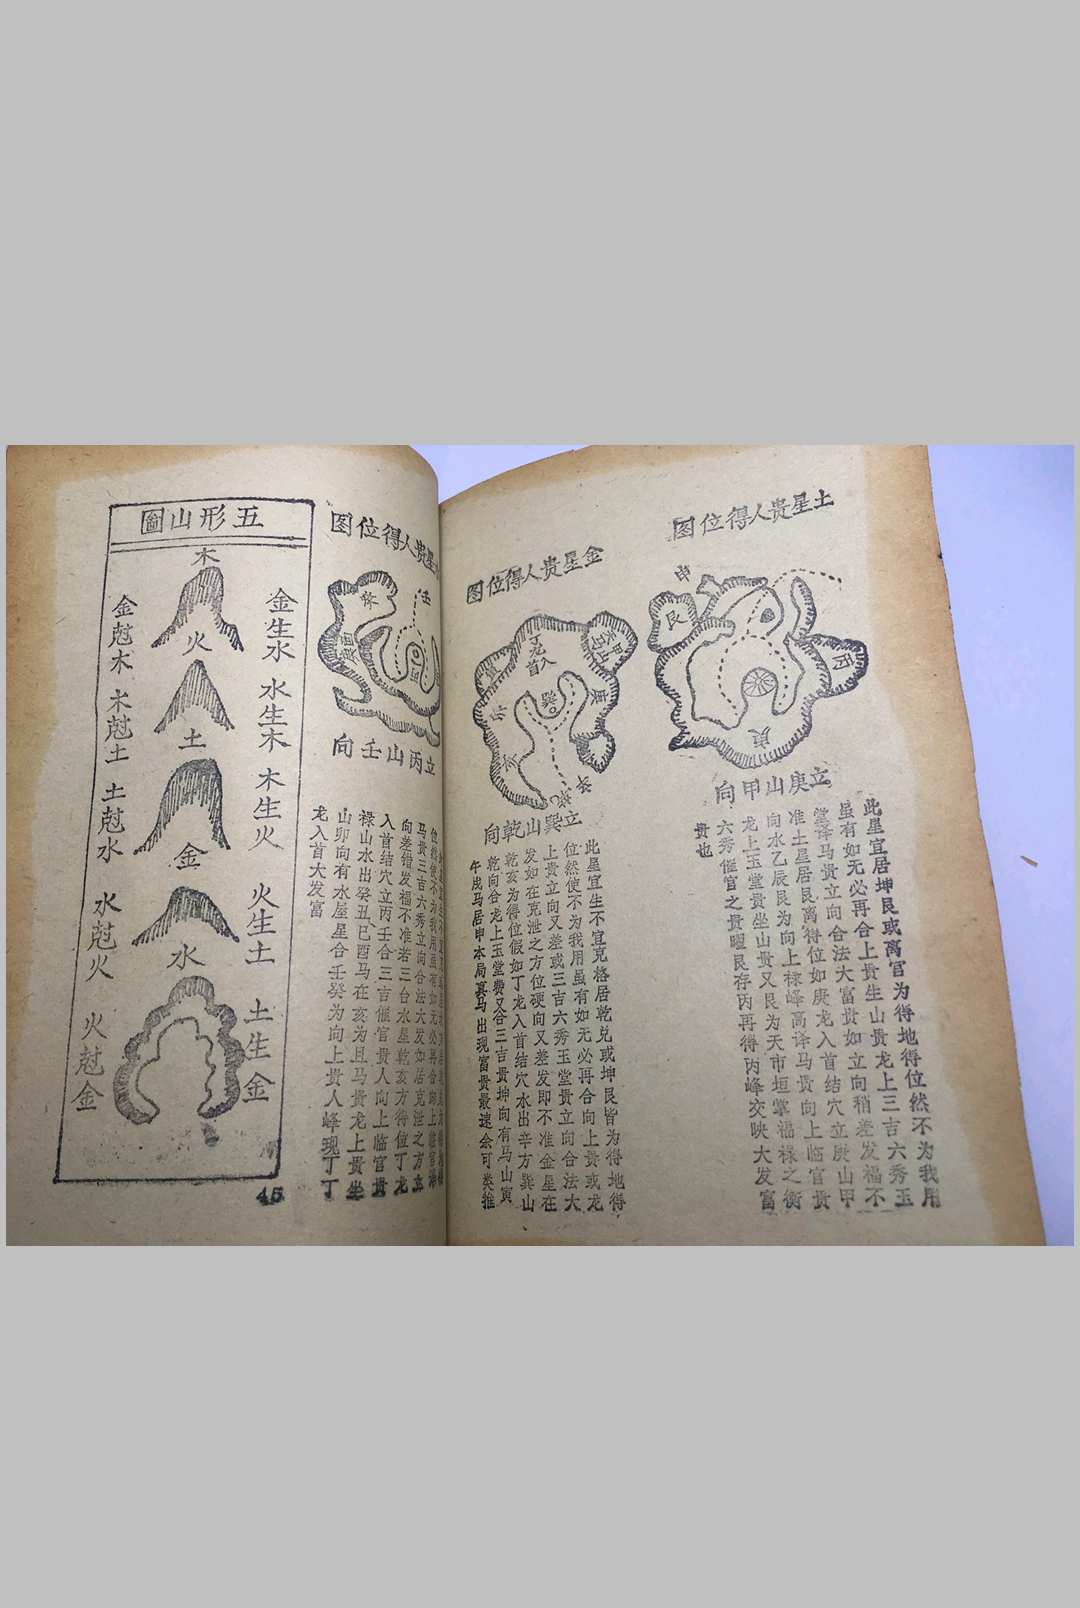 土星贵人得位图
申
艮
丙
庚
立庚山甲向
此星宜居坤艮或离宫为得地得位然不为我用
虽有如无必再合上贵生山贵龙上三吉六秀玉
堂译马贵立向合法大富贵如立向稍差发福不
准土星居艮离得位如庚龙入首结穴立庚山甲
向水乙辰艮为向上禄峰高译马贵向上临官贵
龙上玉堂贵坐山贵又艮为天市垣掌福禄之衡
六秀催官之贵曜艮存丙再得丙峰交映大发富
贵也
金星贵人得位图
丁龙首入
庚
巽
亥
辛
立巽山乾向
此星宜生不宜克格居乾兑或坤艮皆为得地得
位然使不为我用虽有如无必再合向上贵或龙
上贵立向又差或三吉六秀玉堂贵立向合法大
发如在克泄之方位硬向又差发即不准金星在
乾亥为得位假如丁龙入首结穴水出辛方巽山
乾向合龙上玉堂贵又合三吉贵坤向有马山寅
午戌马居申本局真马出现富贵最速余可类推
星贵人得位图
壬
立丙山壬向
位然使不为我用虽有如无必再合向上临官
马贵三吉六秀立向合法大发如居克泄之方立
向差错发福不准若三台水星乾亥方得位丁龙
入首结穴立丙壬合三吉催官贵人向上临官贵
禄山水出癸丑、巳酉马在亥为且马贵龙上贵坐
山卯向有水屋星合壬癸为向上贵人峰现丁丁
龙入首大发富
五形山圖
木
火
土
金
水
金生水
水生木
木生火
火生土
土生金
金尅木
木尅土
土尅水
水尅火
火尅金
45